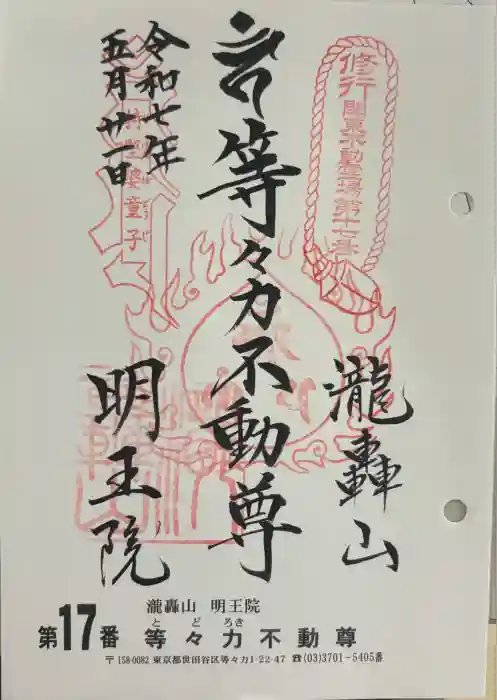 修行
関東不動霊場第十七番
等々力不動尊
瀧轟山
令和七年
五月廿一日
持堅婆童子
明王院
瀧轟山 明王院
とどろき
第17番 等々力不動尊
〒158-0082 東京都世田谷区等々力1-22-47 ☎(03)3701-5405番